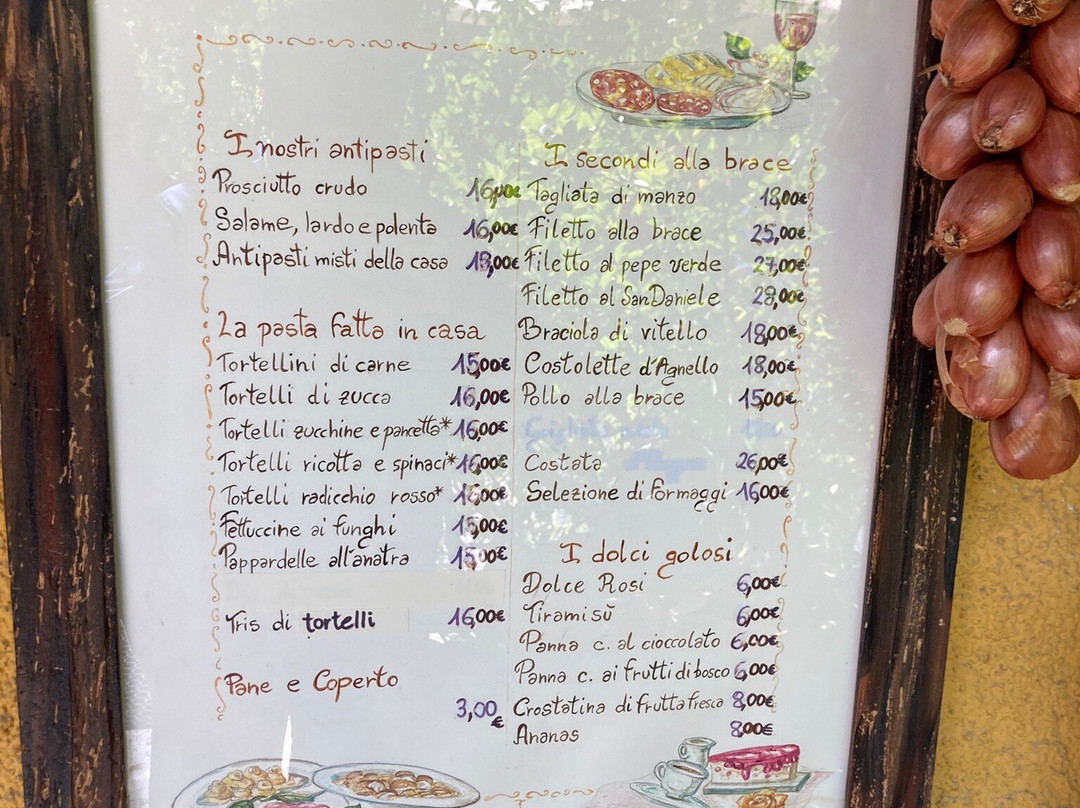 I nostri antipasti
Prosciutto crudo 16,00€
Salame, lardo e polenta 16,00€
Antipasti misti della casa 18,00€
La pasta fatta in casa
Tortellini di carne 15,00€
Tortelli di zucca 16,00€
Tortelli zucchine e pancetta* 16,00€
Tortelli ricotta e spinaci* 16,00€
Tortelli radicchio rosso*
Fettuccine ai funghi 15,00€
Pappardelle all'anatra 15,00€
Tris di tortelli 16,00€
Pane e Coperto
3,00€
I secondi alla brace
Tagliata di manzo 18,00€
Filetto alla brace 25,00€
Filetto al pepe verde 27,00€
Filetto al San Daniele 28,00€
Braciola di vitello 18,00€
Costolette d'Agnello 18,00€
Pollo alla brace 15,00€
Costata 26,00€
Selezione di formaggi 16,00€
I dolci golosi
Dolce Rosi 6,00€
Tiramisù 6,00€
Panna c. al cioccolato 6,00€
Panna c. ai frutti di bosco 6,00€
Crostatina di frutta fresca 8,00€
Ananas 8,00€